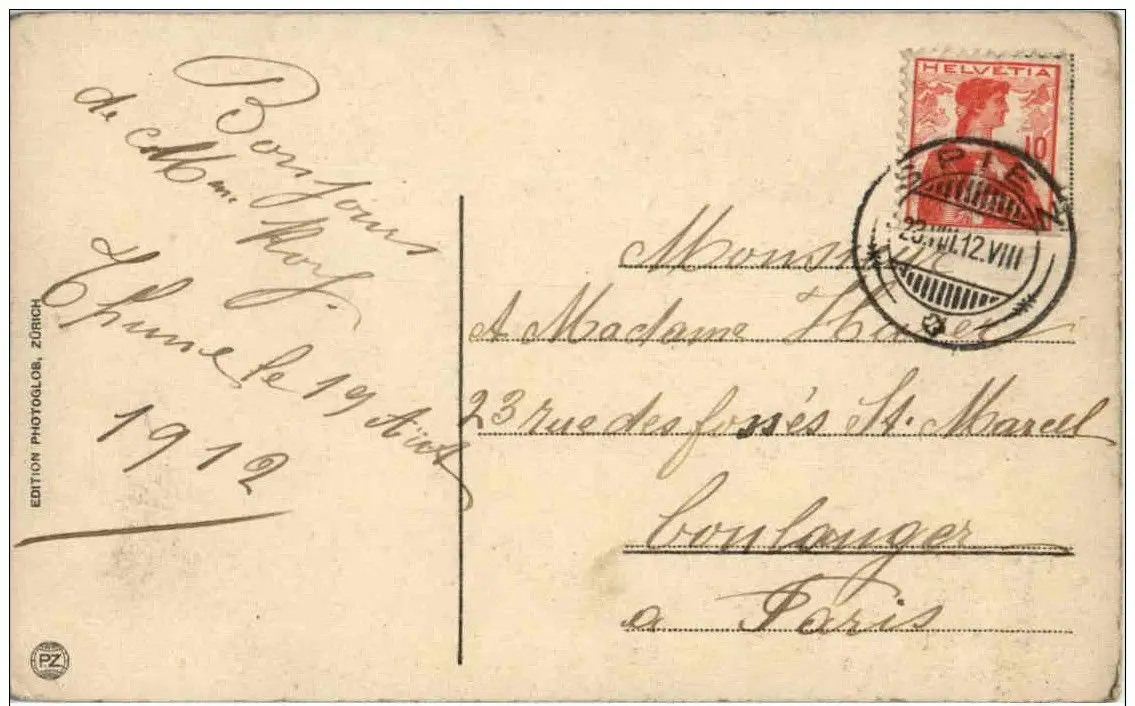 Bonjour
de
Thune le 19 Août
1912
EDITION PHOTOGLOB, ZÜRICH
PZ
HELVETIA
10
SPIEZ
23.VIII.12.VIII
Monsieur
A Madame
23 rue des fossés St. Marcel
boulanger
a Paris